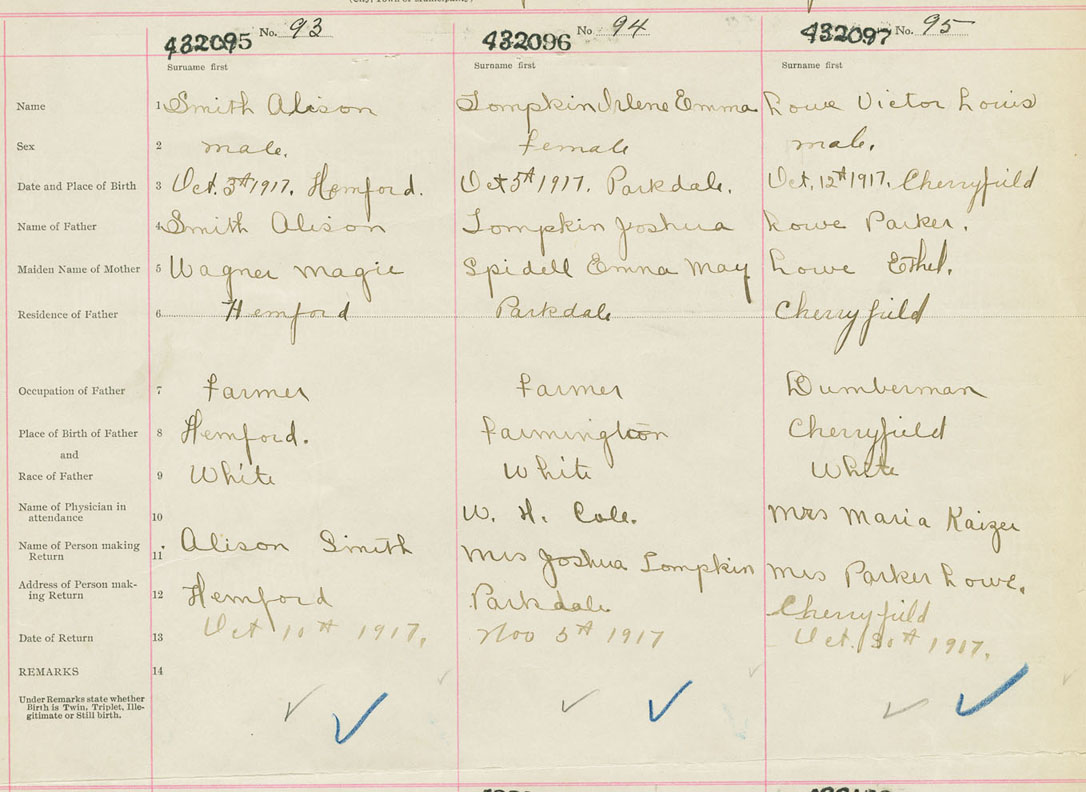 (City, Town or Municipality)
432095 No. 93 432096 No. 94 432097 No. 95
Surname first Surname first Surname first
Name 1 Smith Alison Lompkin Irlene Emma Lowe Victor Louis
Sex 2 male. Female male.
Date and Place of Birth 3 Oct. 3th 1917. Hemford. Oct 5th 1917. Parkdale. Oct. 12th 1917. Cherryfield
Name of Father 4 Smith Alison Lompkin Joshua Lowe Parker.
Maiden Name of Mother 5 Wagner Magie Spidell Emma May Lowe Ethel.
Residence of Father 6 Hemford Parkdale Cherryfield
Occupation of Father 7 Farmer Farmer Lumberman
Place of Birth of Father 8 Hemford. Farmington Cherryfield
and
Race of Father 9 White White White
Name of Physician in
attendance 10 W. H. Cole. Mrs Maria Kaizer
Name of Person making
Return 11 Alison Smith Mrs Joshua Lompkin Mrs Parker Lowe.
Address of Person mak-
ing Return 12 Hemford Parkdale Cherryfield
Date of Return 13 Oct 10th 1917. Nov 5th 1917 Oct. 30th 1917.
REMARKS 14
Under Remarks state whether
Birth is Twin, Triplet, Ille-
gitimate or Still birth.